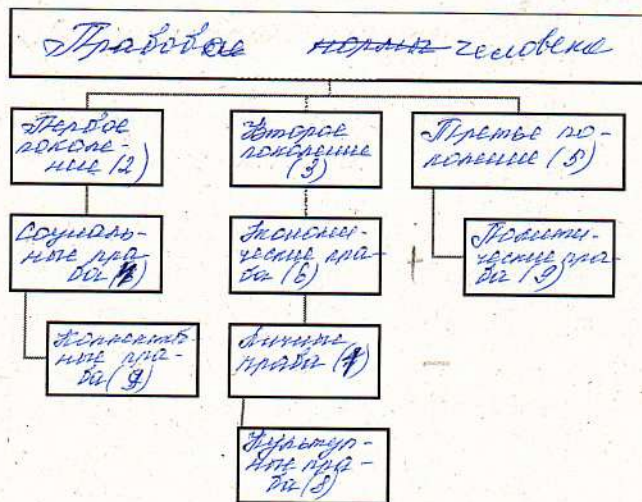 Правовое нормы человека
Первое
поколе-
ние (2)
Второе
поколение
(3)
Третье по-
коление (5)
Социаль-
ные пра-
ва
Экономи-
ческие пра-
ва (6)
Полити-
ческие пра-
ва (9)
Коллектив-
ные пра-
ва
Личные
права
Культур-
ные пра-
ва (8)